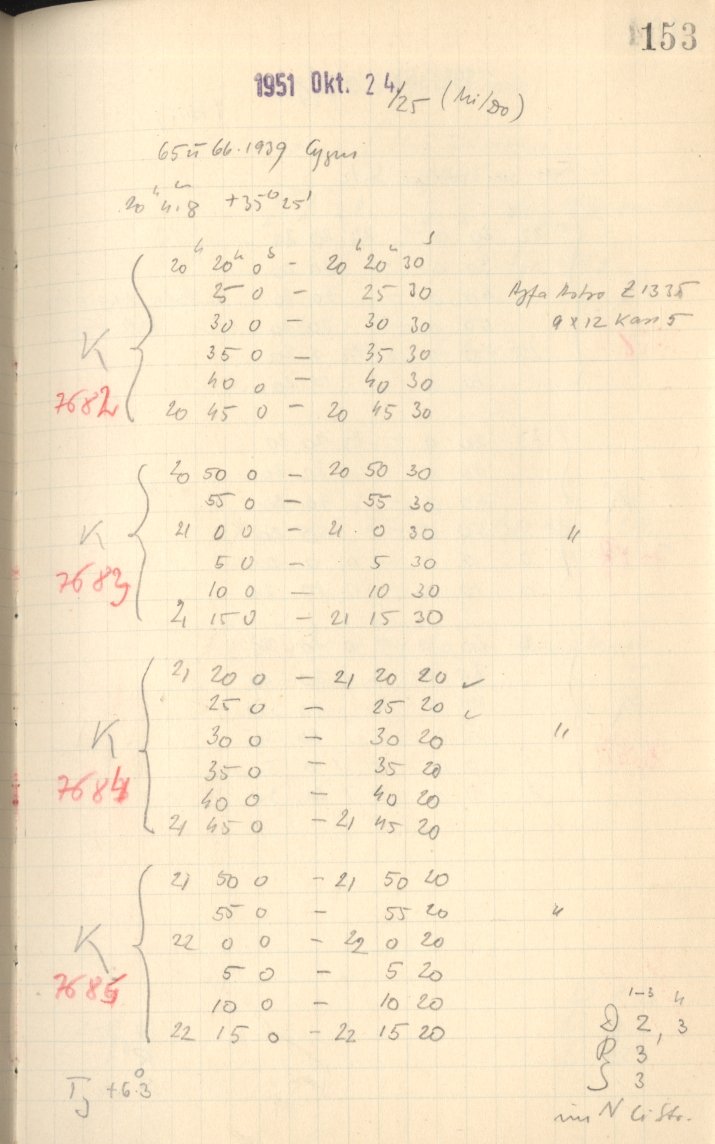 153
1951 Okt. 24/25 (Mi/Do)
65 u 66.1939 Cygni
20h 4m.8 +35° 25'
20h 20m 0s - 20h 20m 30s
25 0 - 25 30 Agfa Astro Z 1335
30 0 - 30 30 9 x 12 Kass 5
K 35 0 - 35 30
40 0 - 40 30
7682 20 45 0 - 20 45 30
20 50 0 - 20 50 30
55 0 - 55 30
K 21 0 0 - 21 0 30 "
5 0 - 5 30
7683 10 0 - 10 30
21 15 0 - 21 15 30
21 20 0 - 21 20 20 ✓
25 0 - 25 20 ✓
K 30 0 - 30 20 "
35 0 - 35 20
7684 40 0 - 40 20
21 45 0 - 21 45 20
21 50 0 - 21 50 20
55 0 - 55 20 "
K 22 0 0 - 22 0 20
5 0 - 5 20
7685 10 0 - 10 20
22 15 0 - 22 15 20
1-3 4
D 2, 3
R 3
S 3
+6.3°
im N